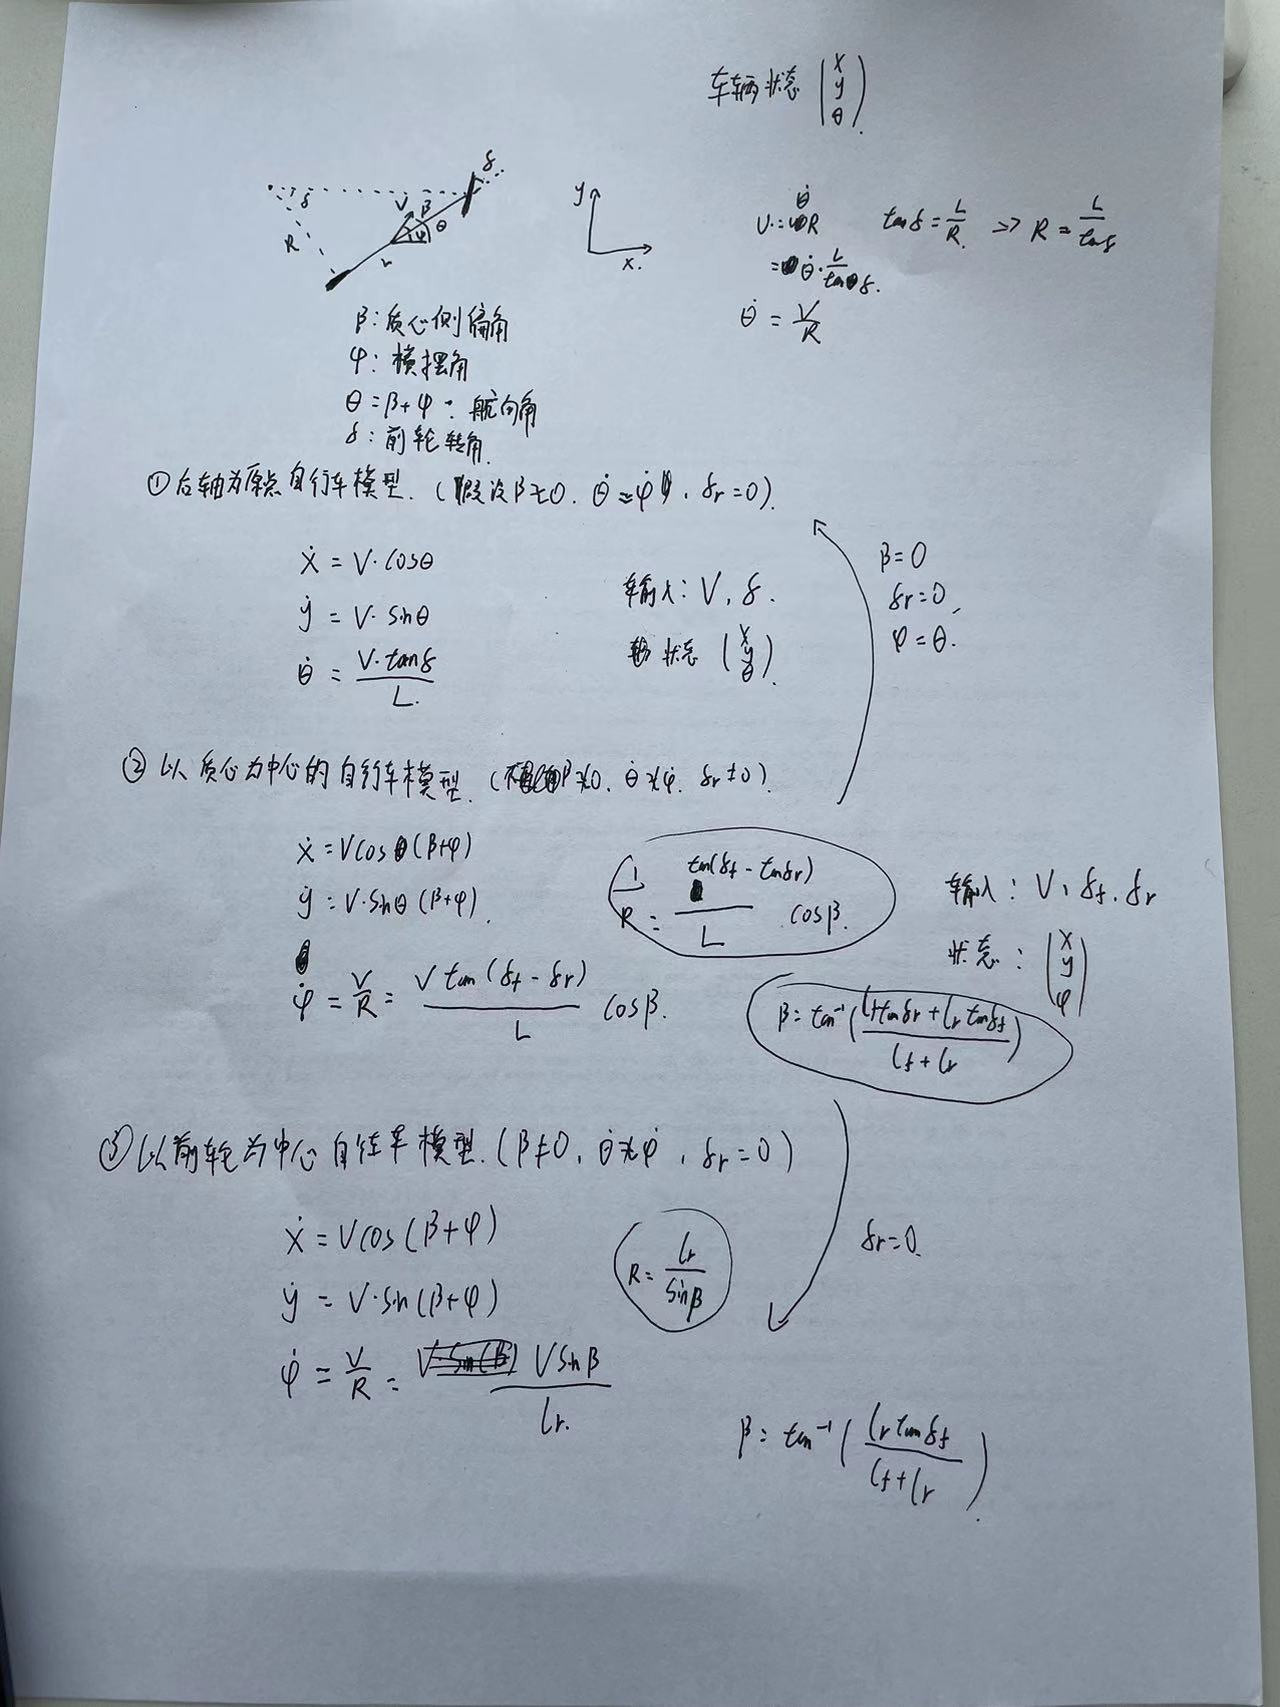 车辆状态 (x y θ).
δ
δ
V β
φ θ
R
L
y
x.
V = θ̇R
= θ̇ · L/tanδ.
θ̇ = V/R
tanδ = L/R. => R = L/tanδ
β: 质心侧偏角
φ: 横摆角
θ = β+φ : 航向角
δ: 前轮转角.
① 后轴为原点自行车模型. (假设β≈0. θ̇≈φ̇, δr=0).
ẋ = V·cosθ
ẏ = V·sinθ
θ̇ = V·tanδ/L.
输入: V, δ.
状态 (x y θ).
β=0
δr=0,
φ=θ.
② 以质心为中心的自行车模型. (β≠0. θ̇≠φ̇. δr≠0).
ẋ = Vcos(β+φ)
ẏ = V·sinθ(β+φ).
φ̇ = V/R = V tan(δf - δr)/L cosβ.
1/R = tan(δf - tanδr)/L cosβ.
输入: V, δf, δr
状态: (x y φ)
β = tan⁻¹(lf tanδr + lr tanδf / lf + lr)
③ 以前轮为中心自行车模型. (β≠0, θ̇≠φ̇, δr=0)
ẋ = Vcos(β+φ)
ẏ = V·sin(β+φ)
φ̇ = V/R = V sinβ/lr.
R = lr/sinβ
δr=0.
β = tan⁻¹(lr tanδf / lf + lr).